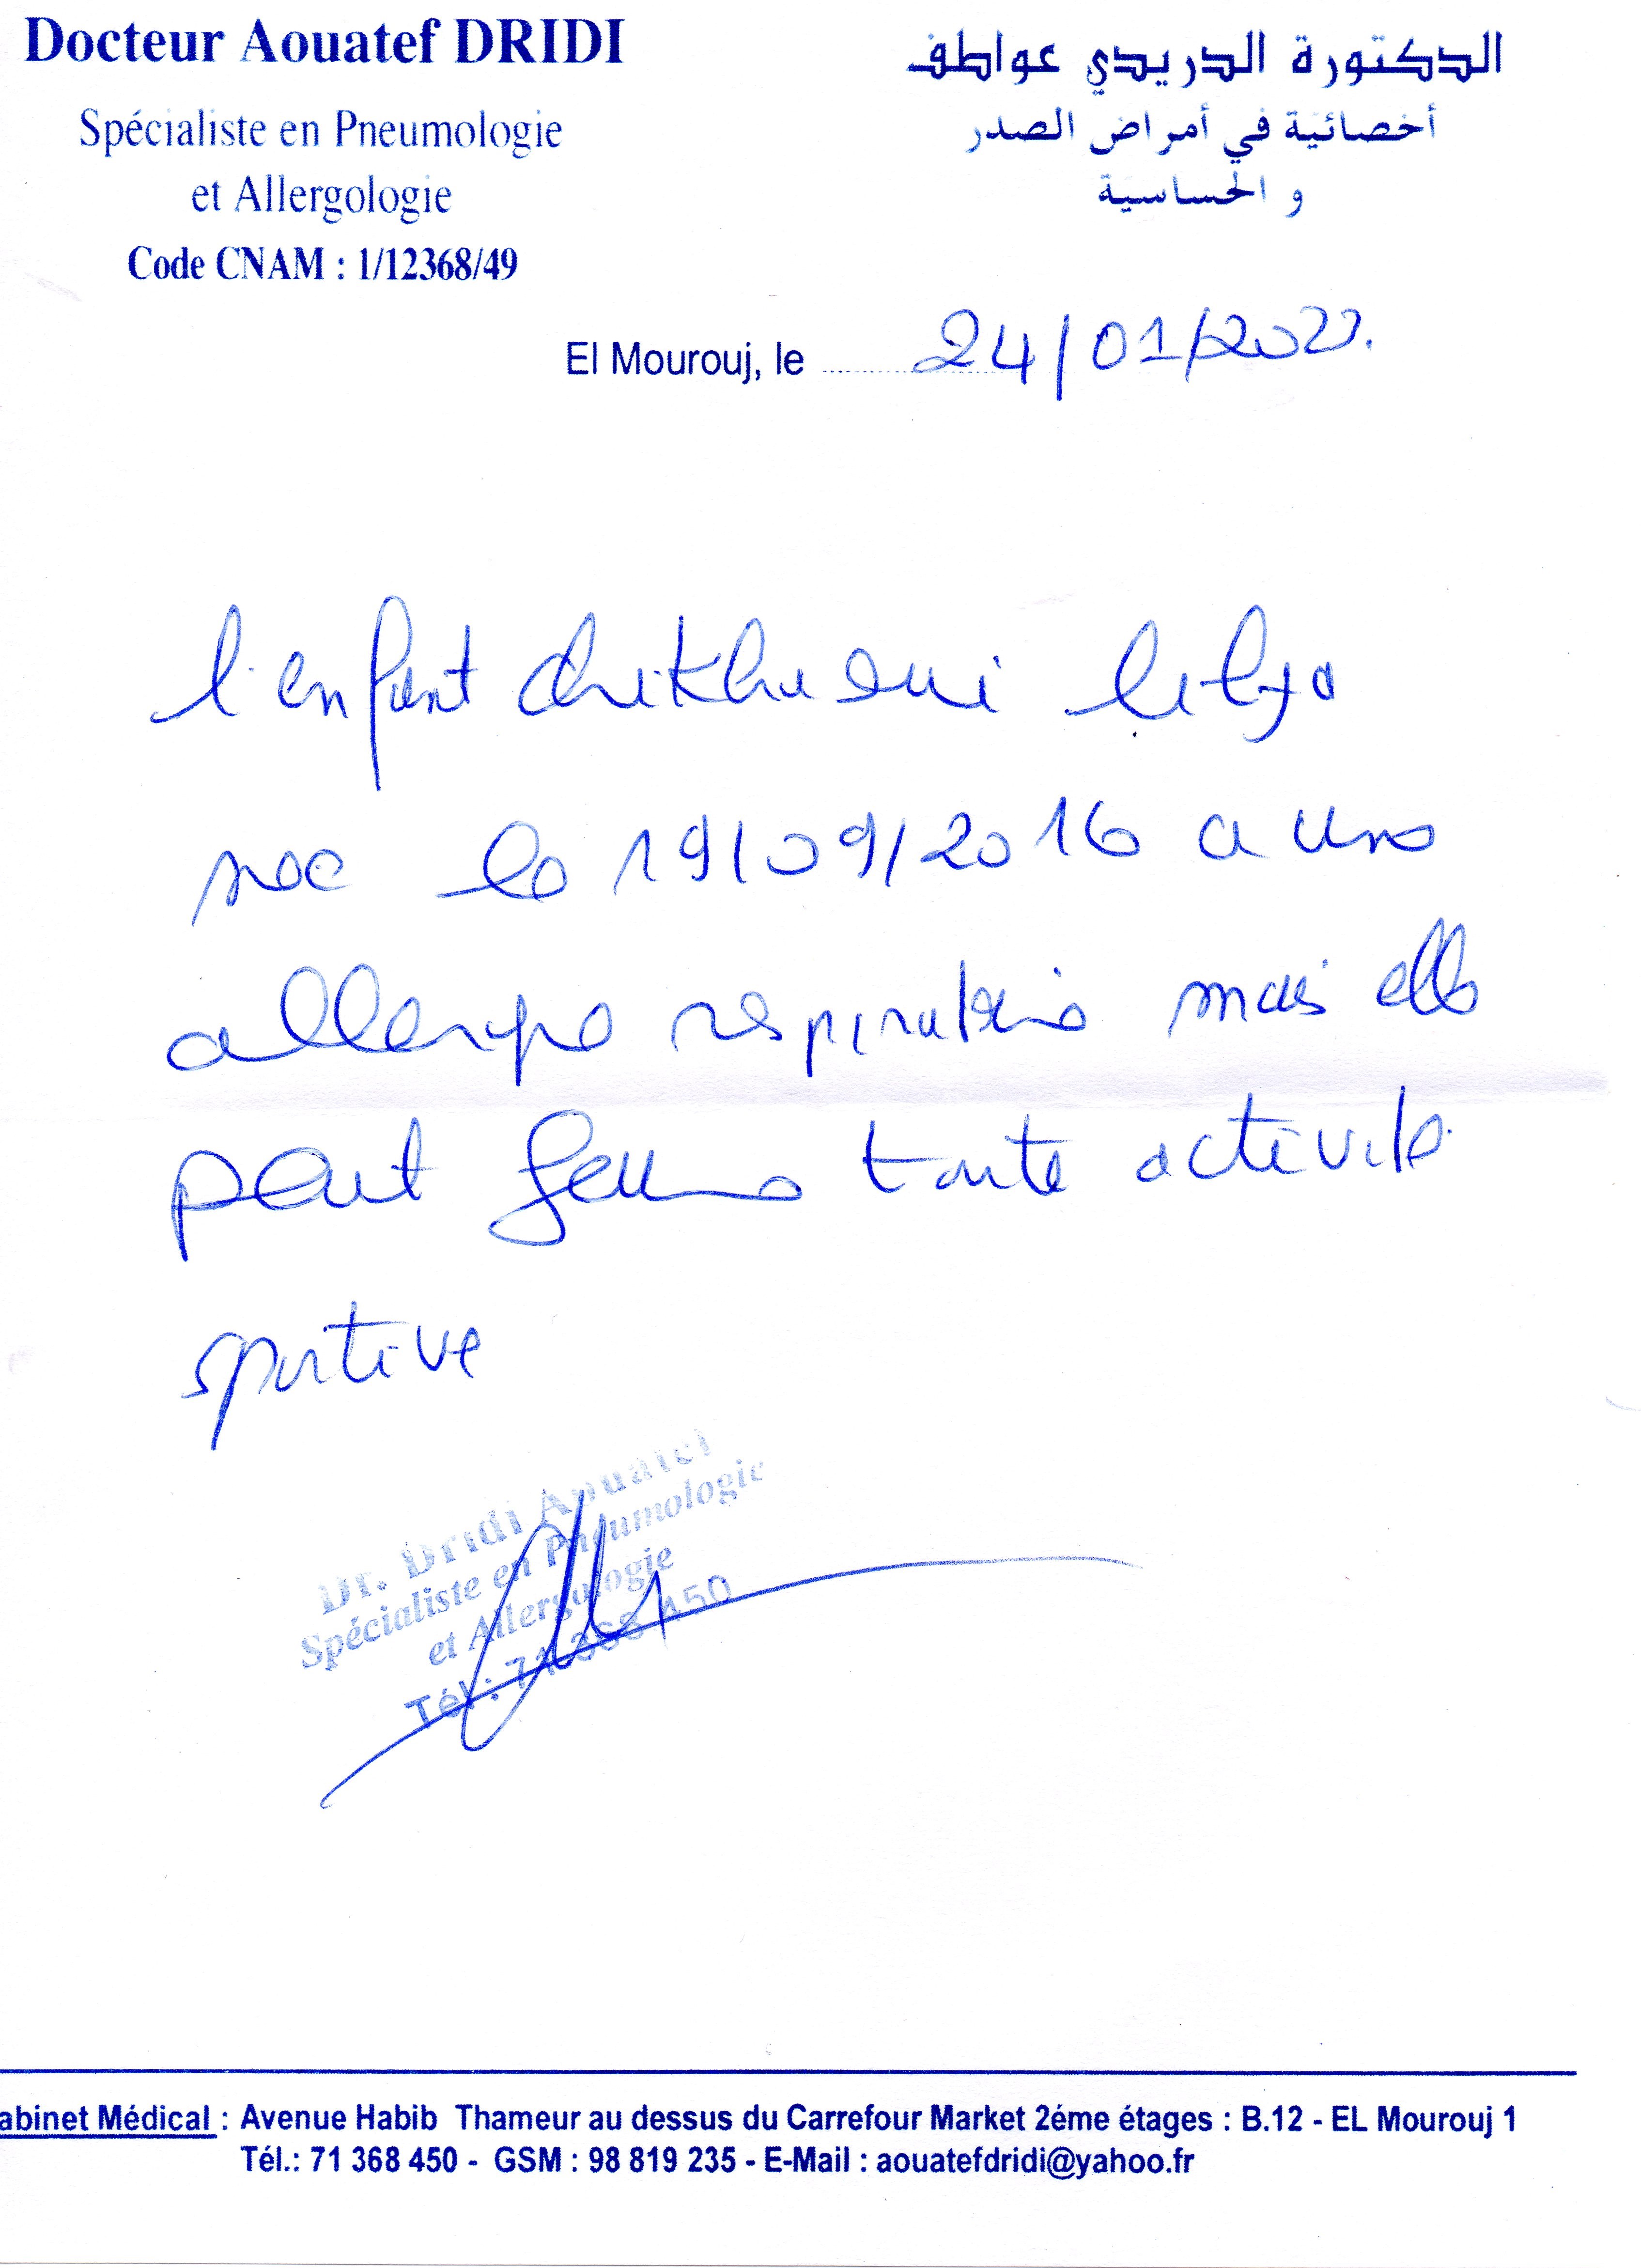 Docteur Aouatef DRIDI
Spécialiste en Pneumologie
et Allergologie
Code CNAM : 1/12368/49
الدكتورة الدريدي عواطف
أخصائية في أمراض الصدر
و الحساسية
El Mourouj, le 24/01/2022.
l'enfant
née le 19/09/2016 a une
allergie respiratoire mais elle
peut faire toute activité
sportive
Dr. Dridi Aouatef
Spécialiste en Pneumologie
et Allergologie
Tél.: 71 368 450
abinet Médical : Avenue Habib Thameur au dessus du Carrefour Market 2éme étages : B.12 - EL Mourouj 1
Tél.: 71 368 450 - GSM : 98 819 235 - E-Mail : aouatefdridi@yahoo.fr